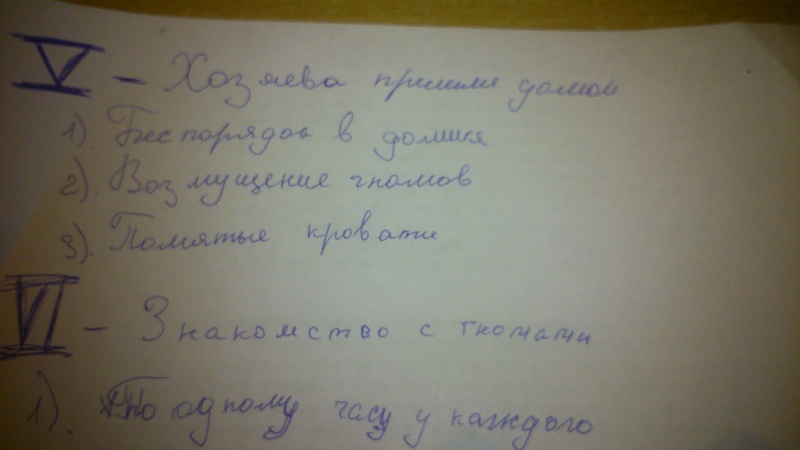 V - Хозяева пришли домой
1). Беспорядок в домике
2). Возмущение гномов
3). Помятые кровати
VI - Знакомство с гномами
1). По одному часу у каждого